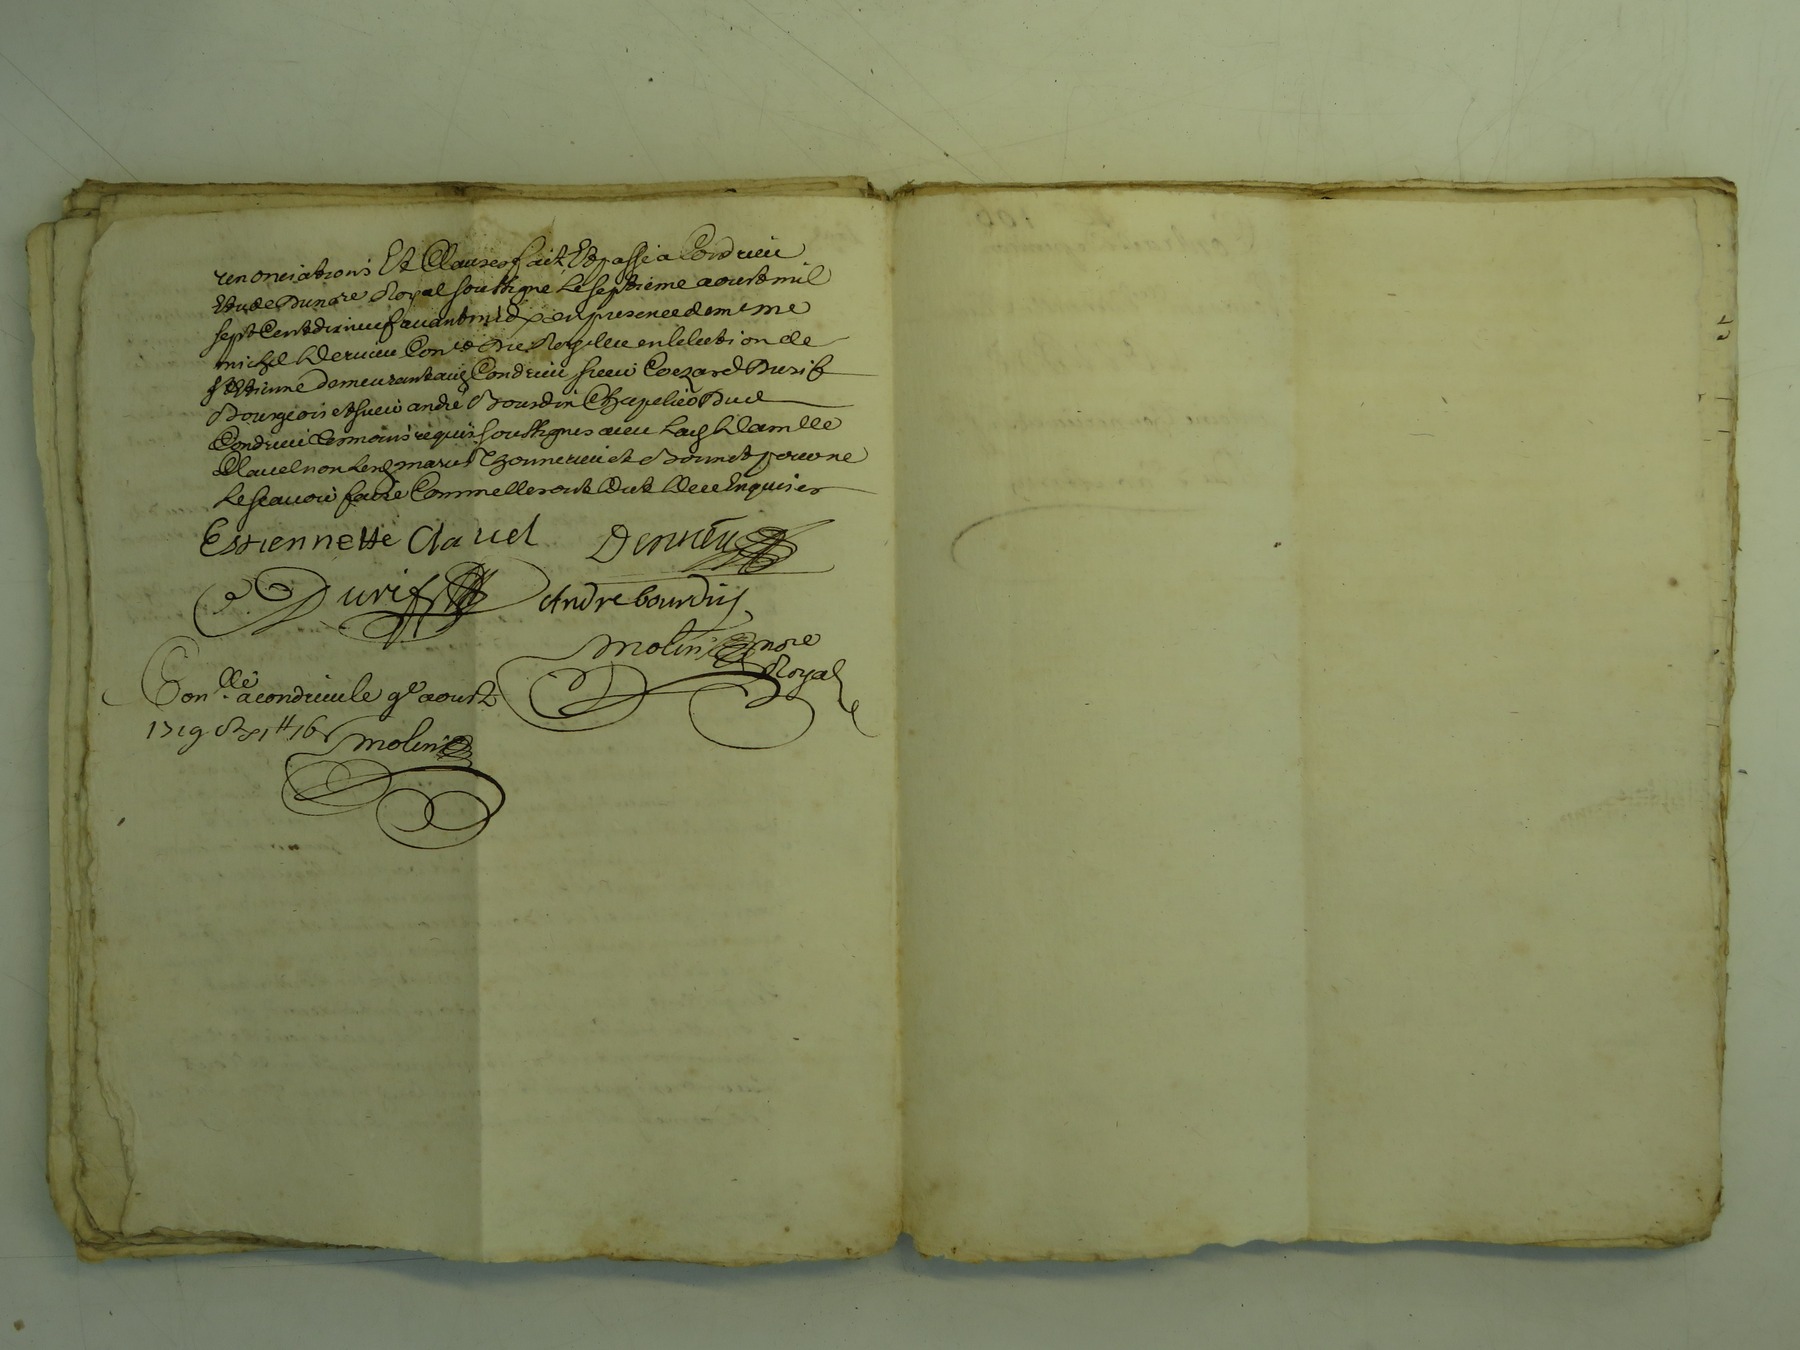 renonciations Et Clauses fait Et passé a Condrieu
Etude Du no.re Royal soussigné Le septieme aoust mil
sept Cent dix neuf avant midy en presence de me
michel Dervieu Con.er Du Roy Elleu en lelection de
st Etienne demeurant aud Condrieu sieur Coezard Durif
Bourgeois et sieur andré Bourdin Chapelier Dud
Condrieu temoins requis soussignes avec Lad Dam.lle
Clavel non Led mariés et Bonnet pour ne
Le scavoir faire Comme Ils ont Dit De ce Enquis
Estiennette Clavel Dervieu
Durif Andre bourdin
Molin nore
Royal
Con.llé a condrieu le 9e aoust
1719 R 1 tt 16 s Molin